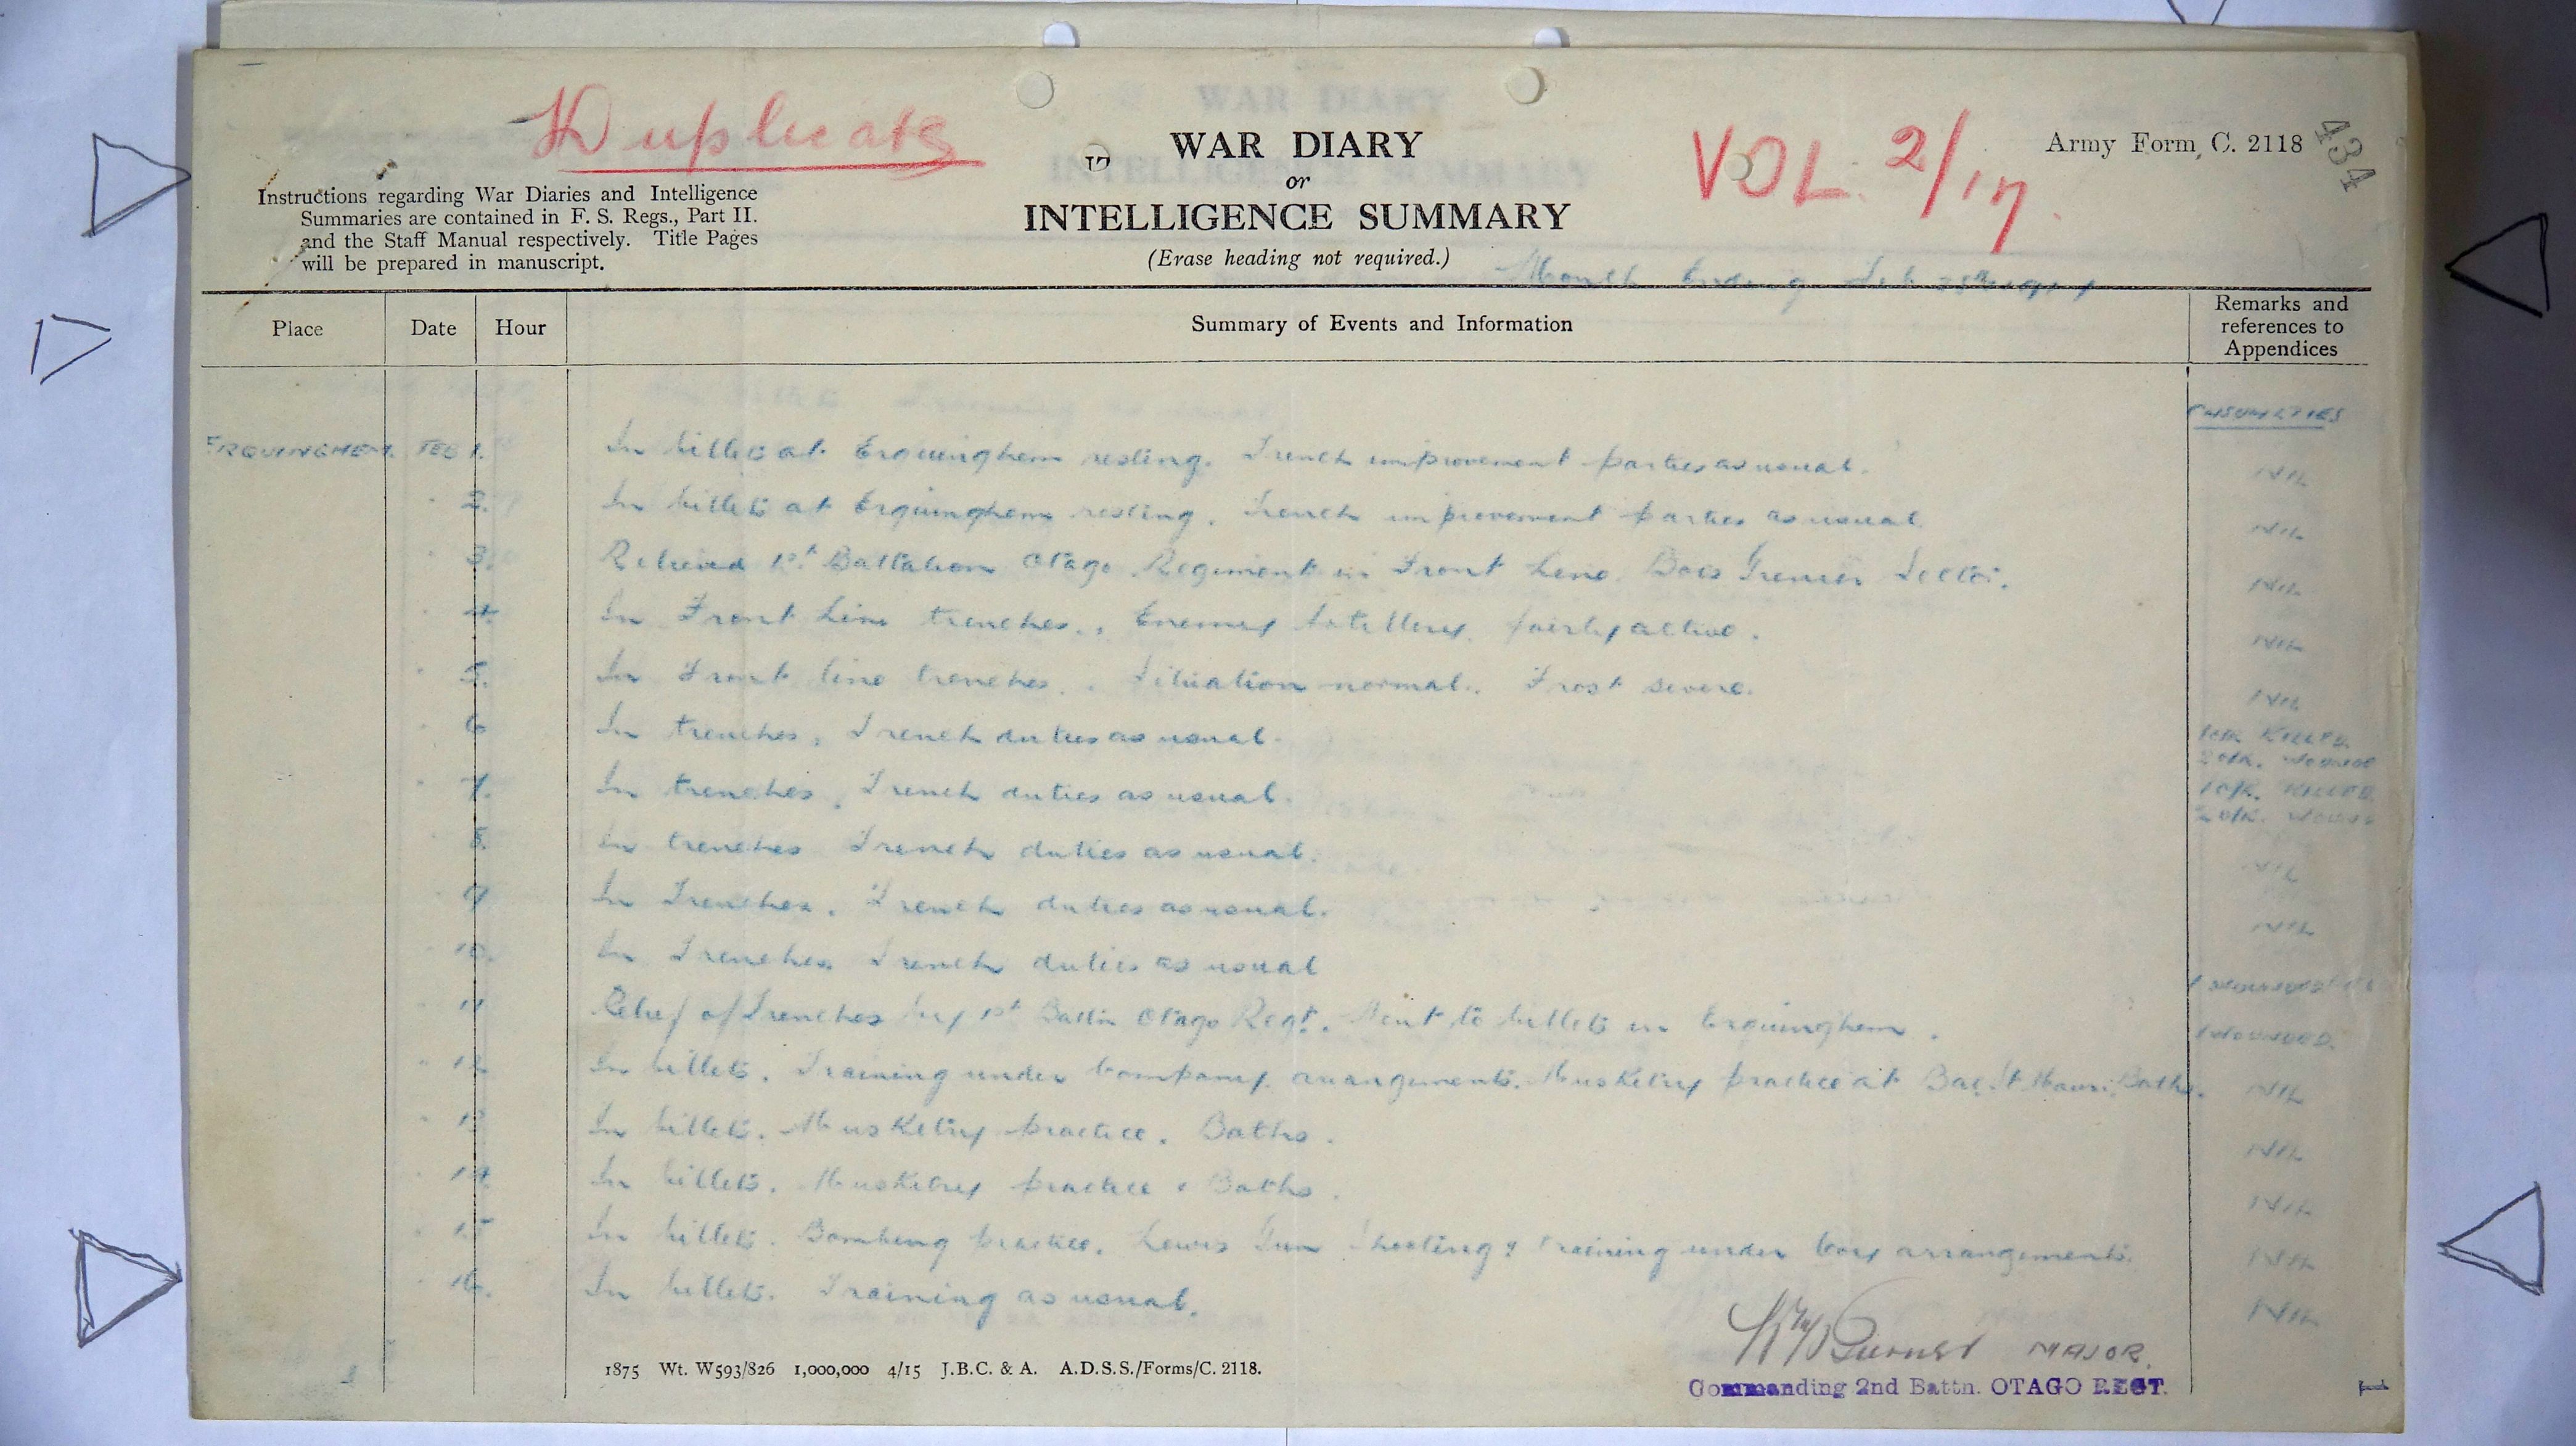 Duplicate
WAR DIARY
or
INTELLIGENCE SUMMARY
(Erase heading not required.)
VOL. 2/17.
Army Form C. 2118
434
Instructions regarding War Diaries and Intelligence
Summaries are contained in F. S. Regs., Part II.
and the Staff Manual respectively. Title Pages
will be prepared in manuscript.
Month Ending Feb 28th 1917
Place Date Hour Summary of Events and Information Remarks and
references to
Appendices
CASUALTIES
ERQUINGHEM. FEB 1. In billets at Erquinghem resting. Trench improvement parties as usual. NIL
" 2. In billets at Erquinghem resting. Trench improvement parties as usual. NIL
" 3. Relieved 1st Battalion Otago Regiment in Front Line Bois Grenier Sector. NIL
" 4. In Front Line trenches. Enemy Artillery fairly active. NIL
" 5. In Front line trenches. Situation normal. Frost severe. NIL
" 6 In trenches, Trench duties as usual. 1 O/R KILLED.
2 O/R. WOUNDED
" 7. In trenches, Trench duties as usual. 1 O/R. KILLED
2 O/R.
" 8. In trenches Trench duties as usual. NIL
" 9 In Trenches. Trench duties as usual. NIL
" 10. In Trenches Trench duties as usual
" 11 Relief of Trenches by 1st Battn Otago Regt. Went to billets in Erquinghem. 1 WOUNDED.
" 12 In billets. Training under Company arrangements. Musketry practice at Bac St Maur. Baths. NIL
" 13 In billets. Musketry practice. Baths. NIL
" 14. In billets. Musketry practice & Baths. NIL
" 15 In billets. Bombing practice. Lewis Gun Shooting & training under Coy arrangements. NIL
" 16. In billets. Training as usual. NIL
MAJOR.
Commanding 2nd Battn. OTAGO REGT.
1875 Wt. W593/826 1,000,000 4/15 J.B.C. & A. A.D.S.S./Forms/C. 2118.